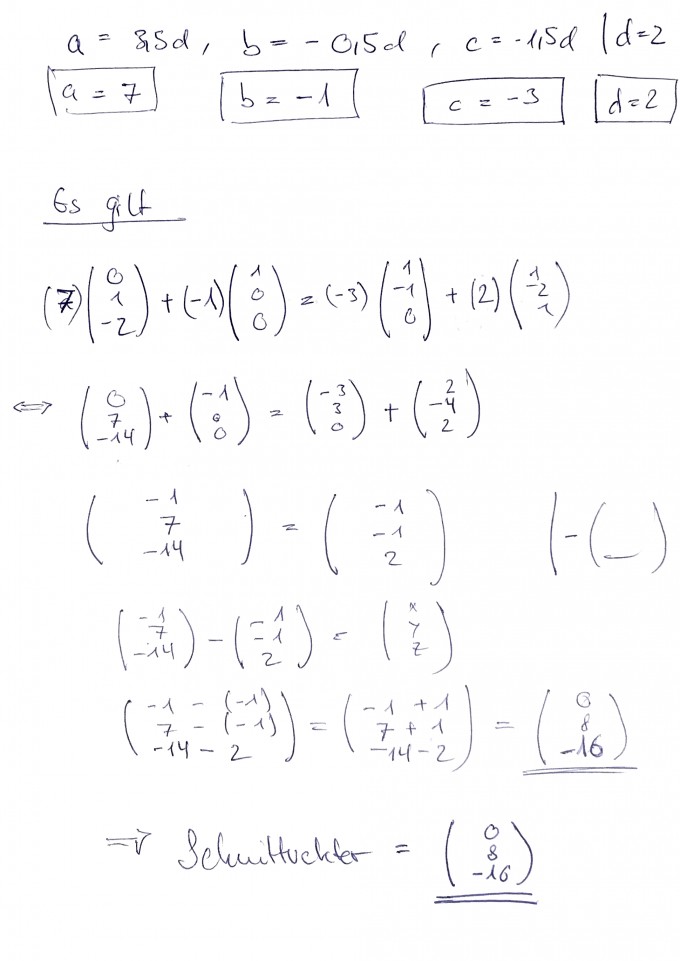 a = 3,5d , b = -0,5d , c = -1,5d | d=2
a = 7 b = -1 c = -3 d=2
Es gilt
(7) (0 1 -2) + (-1) (1 0 0) = (-3) (1 -1 0) + (2) (1 -2 1)
⇔ (0 7 -14) + (-1 0 0) = (-3 3 0) + (2 -4 2)
(-1 7 -14) = (-1 -1 2) | - ( _ )
(-1 7 -14) - (-1 -1 2) = (x y z)
(-1 - (-1) 7 - (-1) -14 - 2) = (-1 + 1 7 + 1 -14 - 2) = (0 8 -16)
⇒ Schnittvektor = (0 8 -16)